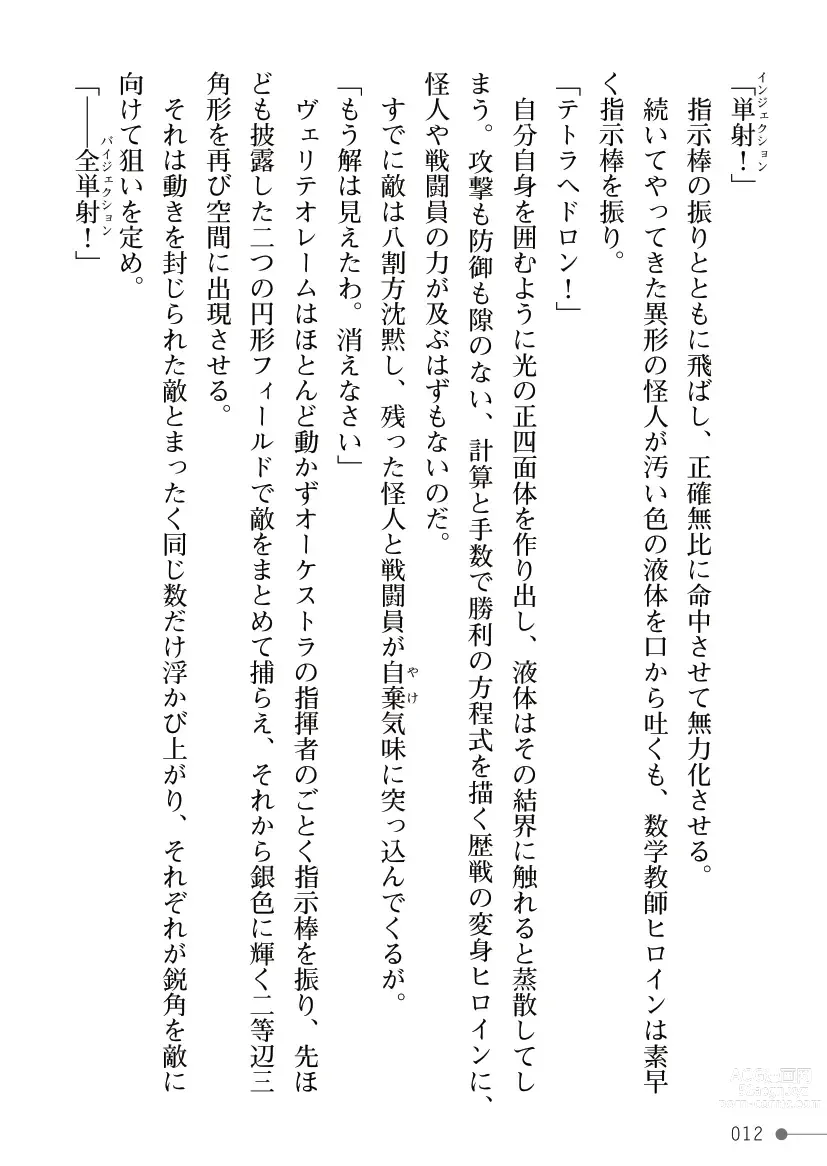 「単射！」
インジェクション
指示棒の振りとともに飛ばし、正確無比に命中させて無力化させる。
続いてやってきた異形の怪人が汚い色の液体を口から吐くも、数学教師ヒロインは素早
く指示棒を振り。
「テトラヘドロン！」
自分自身を囲むように光の正四面体を作り出し、液体はその結界に触れると蒸散してし
まう。攻撃も防御も隙のない、計算と手数で勝利の方程式を描く歴戦の変身ヒロインに、
怪人や戦闘員の力が及ぶはずもないのだ。
すでに敵は八割方沈黙し、残った怪人と戦闘員が自棄気味に突っ込んでくるが。
やけ
「もう解は見えたわ。消えなさい」
ヴェリテオレームはほとんど動かずオーケストラの指揮者のごとく指示棒を振り、先ほ
ども披露した二つの円形フィールドで敵をまとめて捕らえ、それから銀色に輝く二等辺三
角形を再び空間に出現させる。
それは動きを封じられた敵とまったく同じ数だけ浮かび上がり、それぞれが鋭角を敵に
向けて狙いを定め。
「――全単射！」
バイジェクション
012